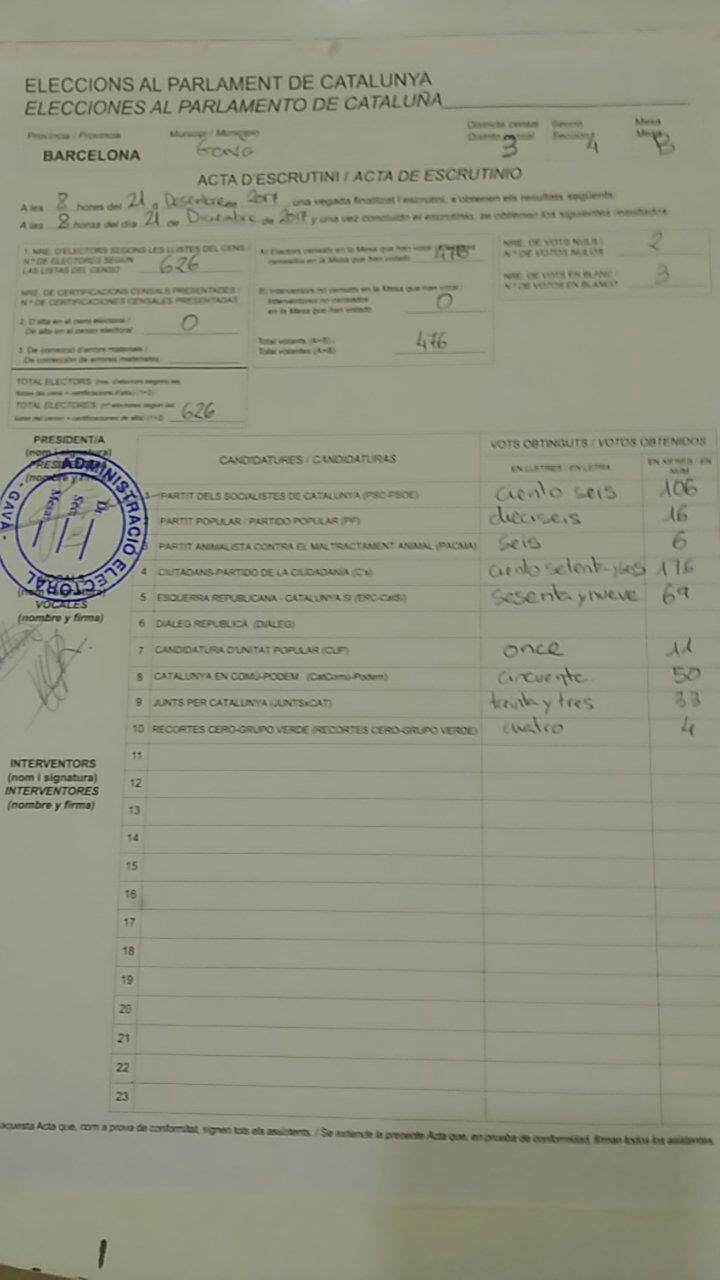 ELECCIONS AL PARLAMENT DE CATALUNYA
ELECCIONES AL PARLAMENTO DE CATALUÑA
Província / Provincia
Municipi / Municipio
Districte censal
Distrito censal
Secció
Sección
Mesa
Mesa
BARCELONA
Gavà
3
4
B
ACTA D'ESCRUTINI / ACTA DE ESCRUTINIO
A les 8 hores del 21 de Desembre de 2017 una vegada finalitzat l'escrutini, s'obtenen els resultats següents:
A las 8 horas del día 21 de Diciembre de 2017 y una vez concluido el escrutinio, se obtienen los siguientes resultados:
1. NRE. D'ELECTORS SEGONS LES LLISTES DEL CENS /
N.º DE ELECTORES SEGÚN
LAS LISTAS DEL CENSO
626
NRE. DE CERTIFICACIONS CENSALS PRESENTADES /
N.º DE CERTIFICACIONES CENSALES PRESENTADAS
2. D'alta en el cens electoral /
De alta en el censo electoral
0
3. De correcció d'errors materials /
De corrección de errores materiales
TOTAL ELECTORS
TOTAL ELECTORES
626
A) Electors censats en la Mesa que han votat /
censados en la Mesa que han votado
476
B) Interventors no censats en la Mesa que han votat /
Interventores no censados
en la Mesa que han votado
0
Total votants (A+B) /
Total votantes (A+B)
476
NRE. DE VOTS NULS /
N.º DE VOTOS NULOS
2
NRE. DE VOTS EN BLANC /
N.º DE VOTOS EN BLANCO
3
PRESIDENT/A
(nom i signatura)
PRESIDENTE
(nombre y firma)
ADMINISTRACIÓ ELECTORAL
- GAVÀ -
Dt.
Sec.
Mesa
VOCALS
VOCALES
(nombre y firma)
INTERVENTORS
(nom i signatura)
INTERVENTORES
(nombre y firma)
CANDIDATURES / CANDIDATURAS
VOTS OBTINGUTS / VOTOS OBTENIDOS
EN LLETRES / EN LETRA
EN XIFRES / EN NÚM
1 PARTIT DELS SOCIALISTES DE CATALUNYA (PSC-PSOE) ciento seis 106
PARTIT POPULAR / PARTIDO POPULAR (PP) dieciseis 16
3 PARTIT ANIMALISTA CONTRA EL MALTRACTAMENT ANIMAL (PACMA) seis 6
4 CIUTADANS-PARTIDO DE LA CIUDADANÍA (C's) ciento setenta y seis 176
5 ESQUERRA REPUBLICANA - CATALUNYA SÍ (ERC-CatSí) sesenta y nueve 69
6 DIÀLEG REPUBLICÀ (DIÀLEG)
7 CANDIDATURA D'UNITAT POPULAR (CUP) once 11
8 CATALUNYA EN COMÚ-PODEM (CatComú-Podem) cincuenta 50
9 JUNTS PER CATALUNYA (JUNTSxCAT) treinta y tres 33
10 RECORTES CERO-GRUPO VERDE (RECORTES CERO-GRUPO VERDE) cuatro 4
11
12
13
14
15
16
17
18
19
20
21
22
23
aquesta Acta que, com a prova de conformitat, signen tots els assistents. / Se extiende la presente Acta que, en prueba de conformidad, firman todos los asistentes.